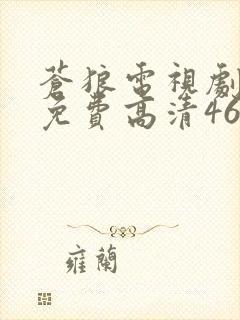 蒼狼電視劇
免費高清46
雍蘭